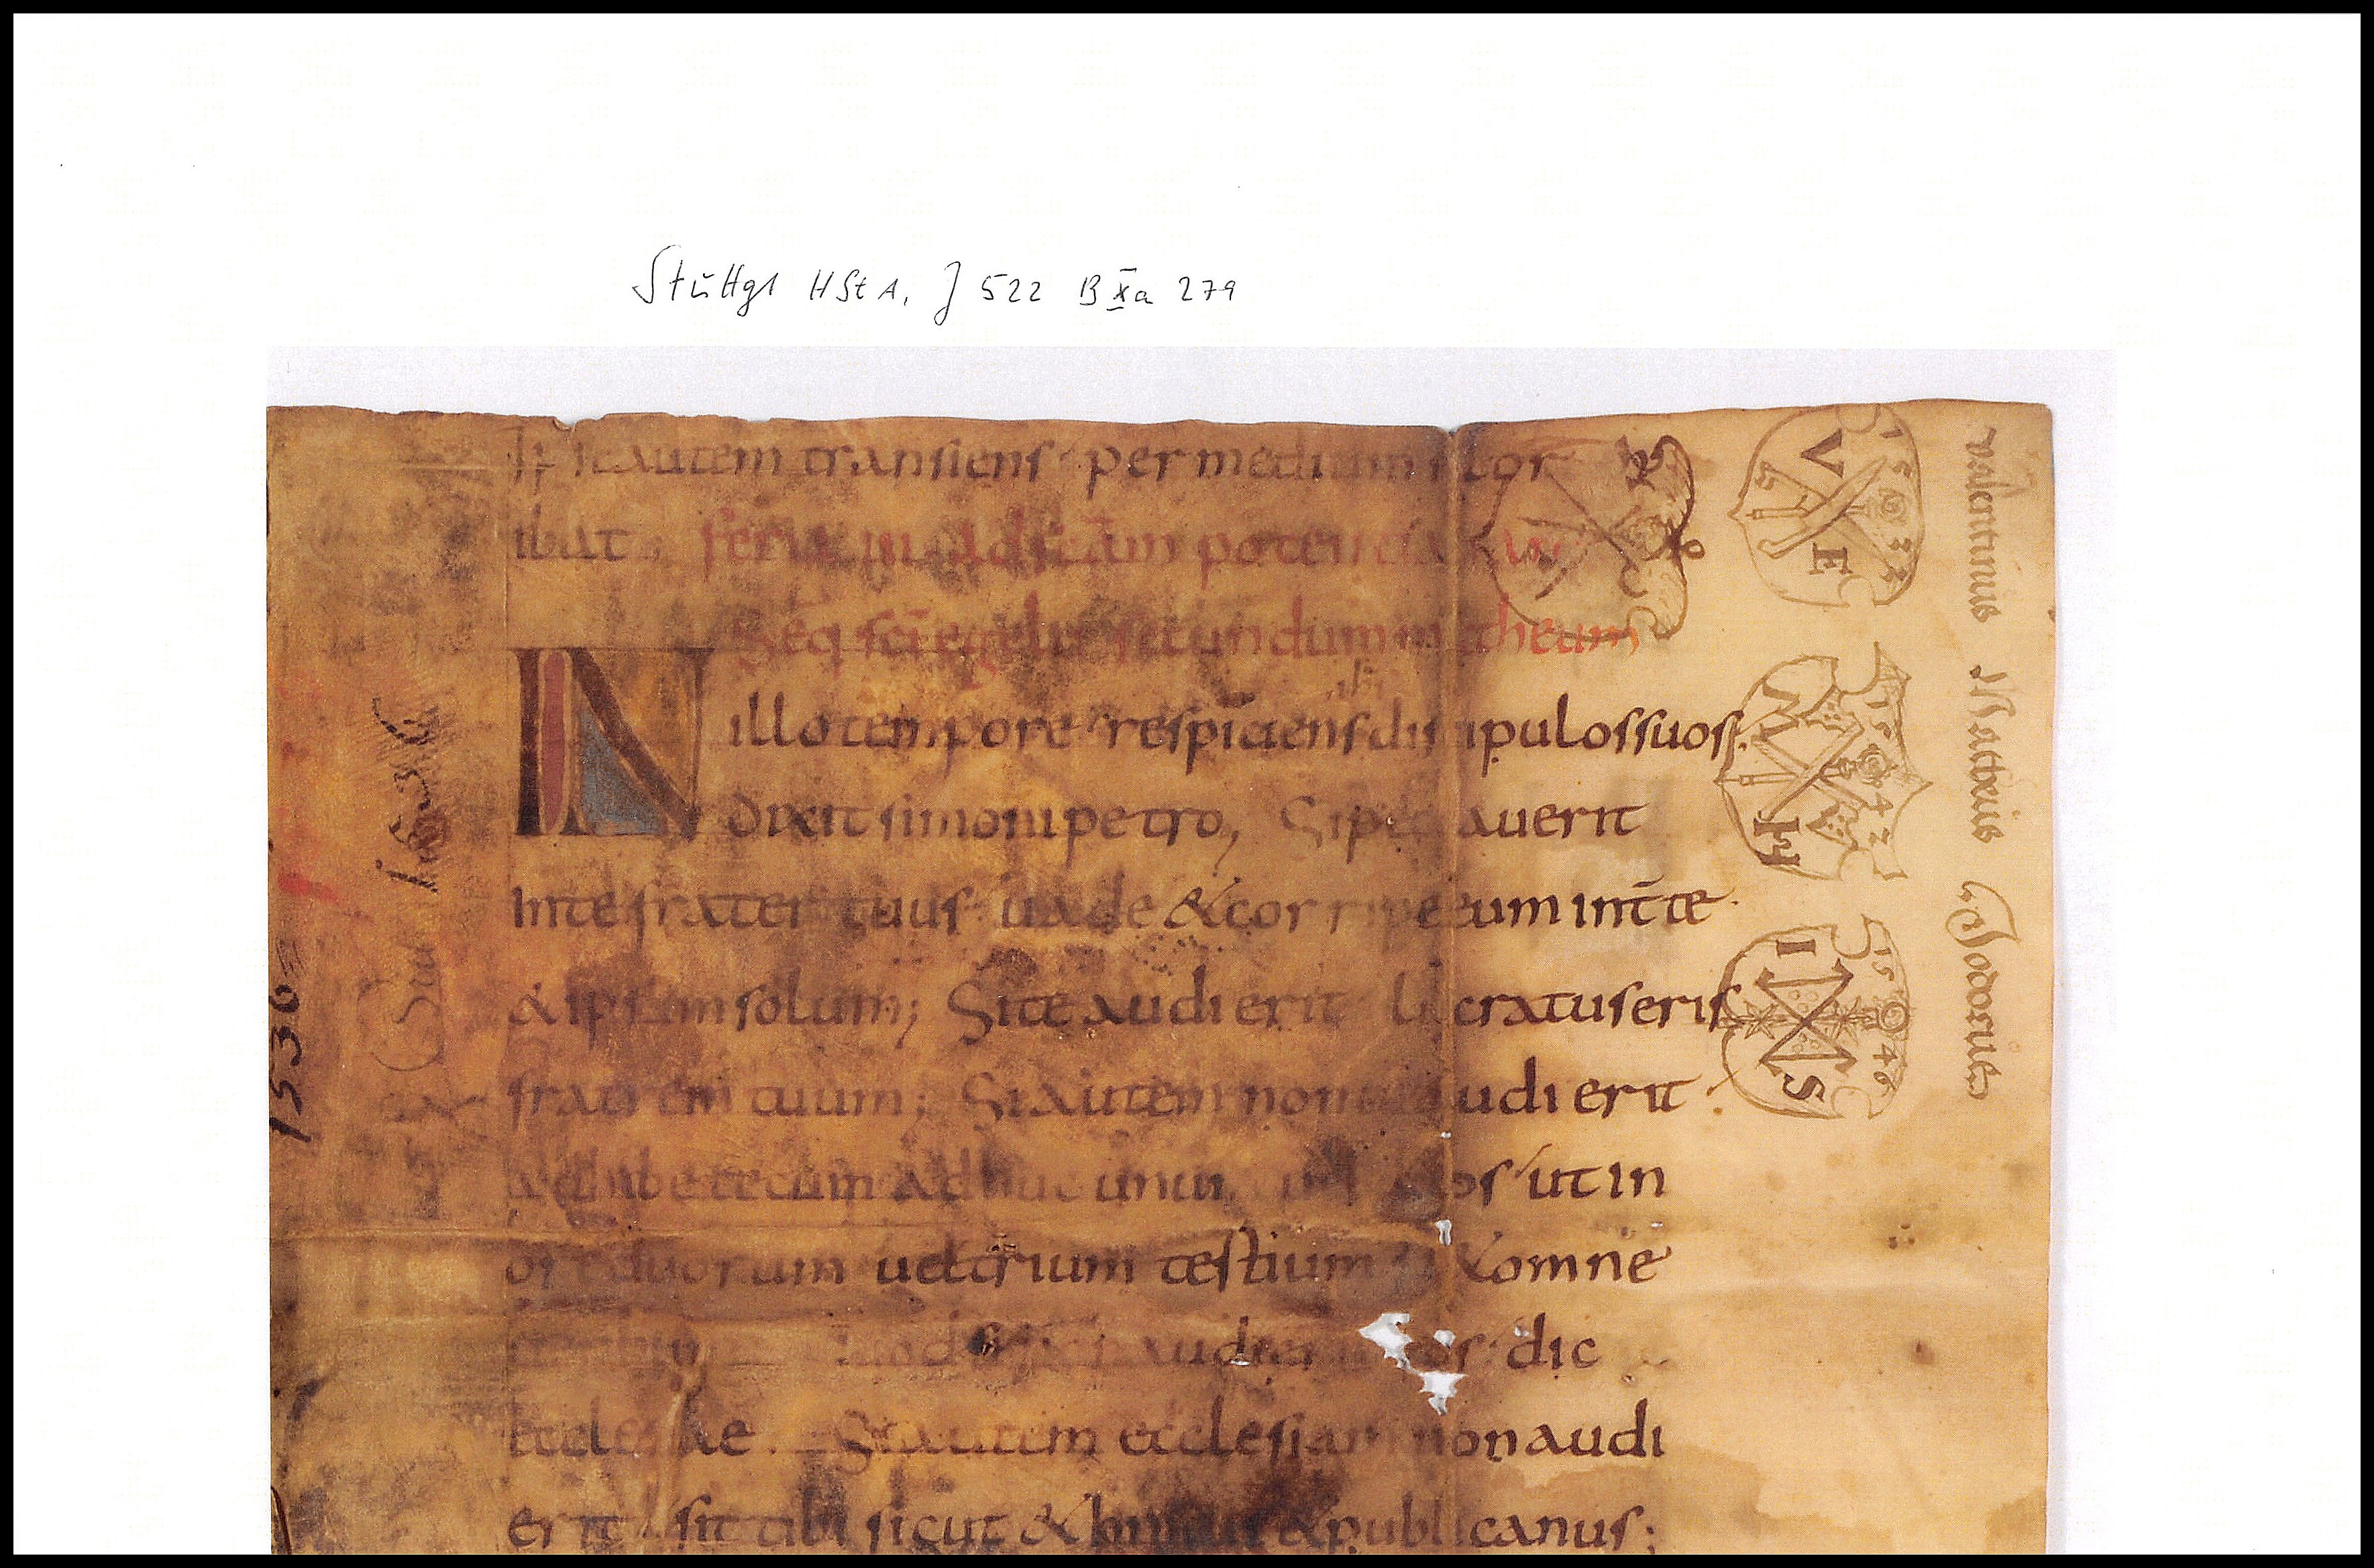 Stuttgt HStA, J 522 B Xa 279
Ipse autem transiens per medium illor
ibat, feria III ad scam potentianam
Seq sci eugelii secundum matheum
IN illo tempore respiciens ihs discipulos suos
dixit simoni petro, Si peccauerit
in te frater tuus uade & corripe eum int te
& ipsum solum; Si te audierit lucratus eris
fratrem tuum; Si autem non te audierit
adhibe tecum adhuc unum uel duos ut in
ore duorum uel trium testium stet omne
Quod si non audierit eos dic
ecclesiae. Si autem ecclesiam non audi
erit sit tibi sicut & hnicus & publicanus;
1536
V E
1533
valentinus
M H
1542
Matheus
I S
1546
Jodocus